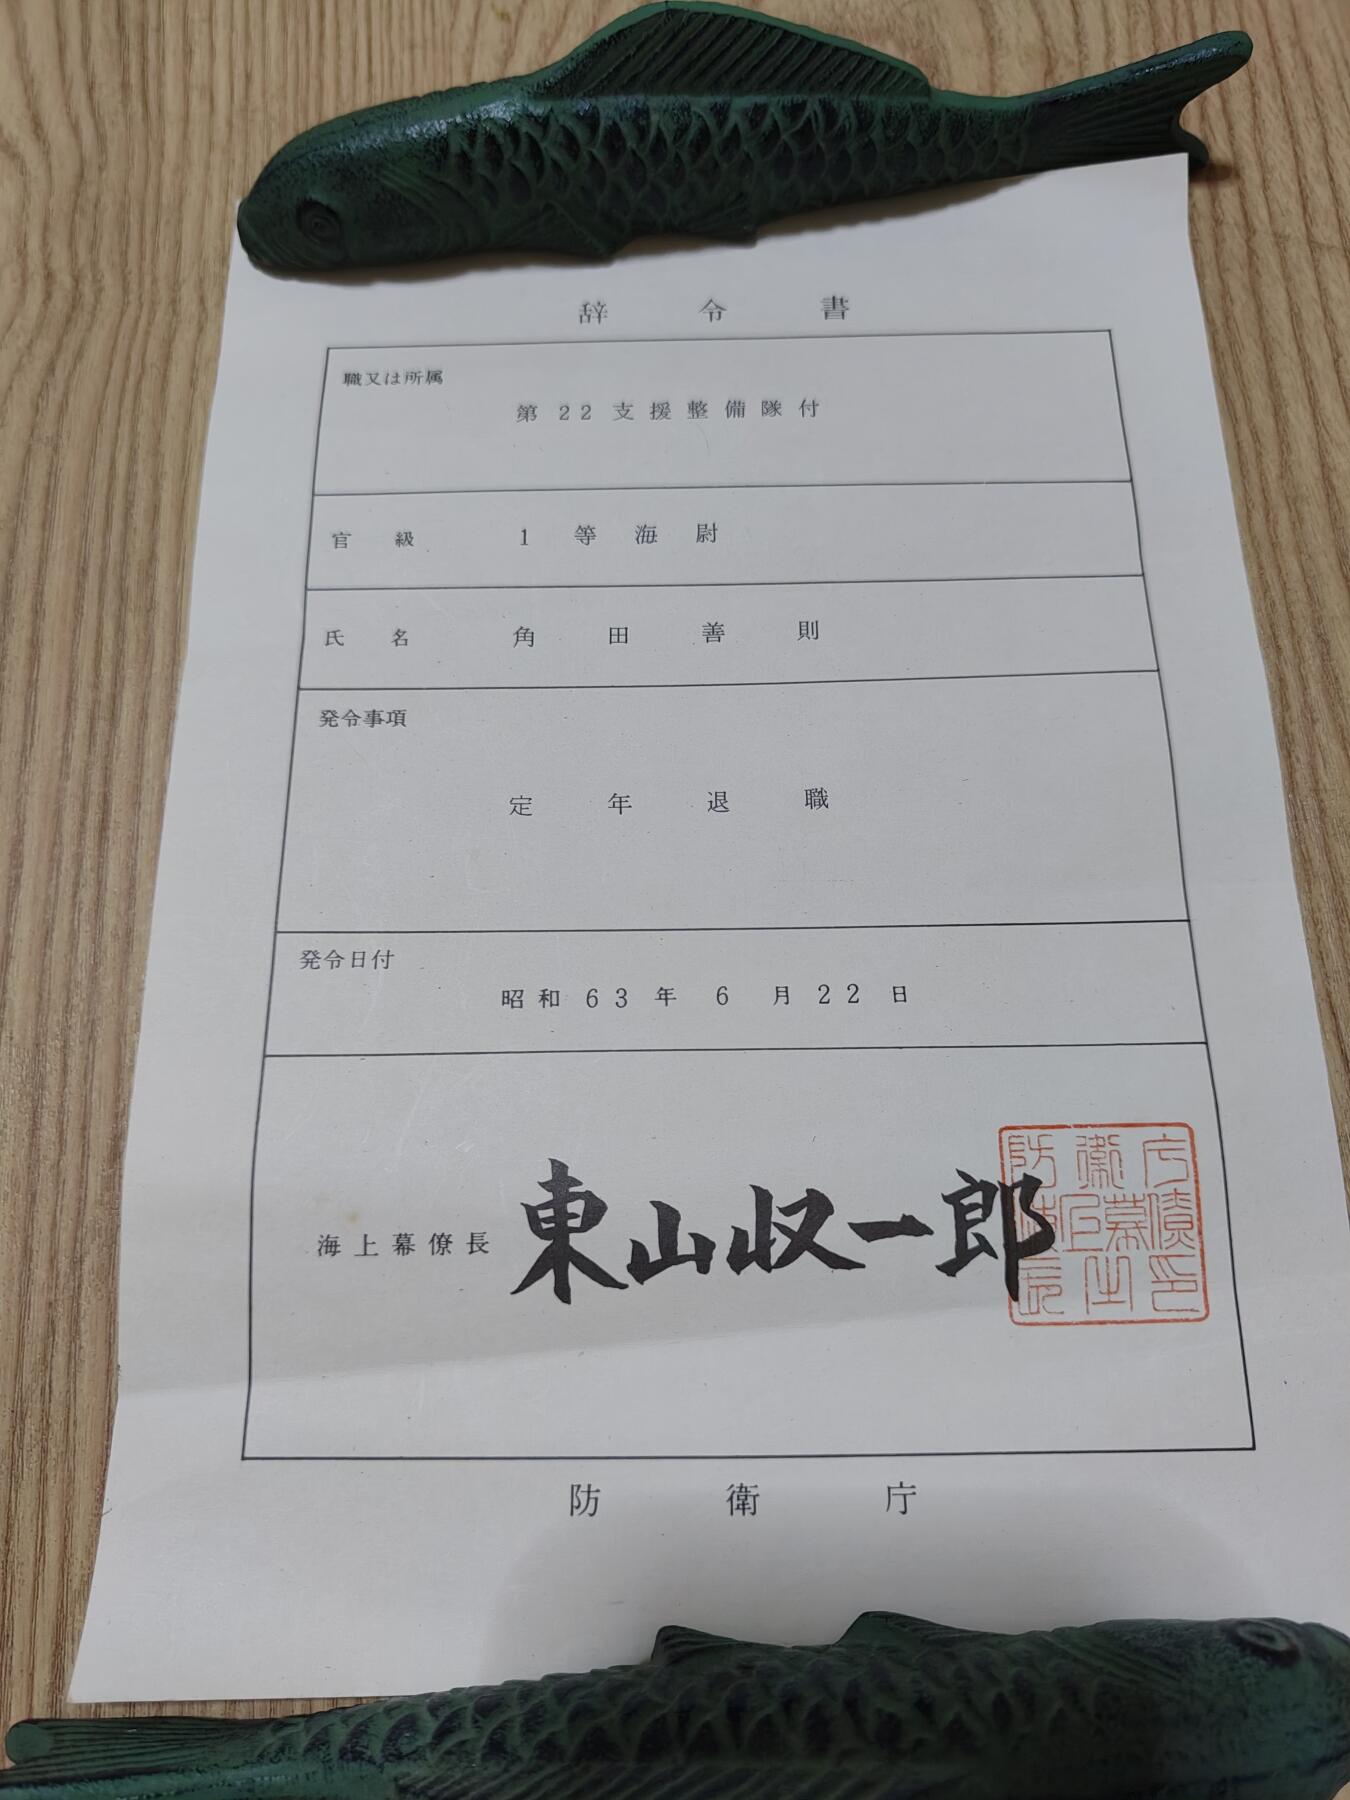 辞令書
職又は所属
第22支援整備隊付
官級 1等海尉
氏名 角田善則
発令事項
定年退職
発令日付
昭和63年6月22日
海上幕僚長 東山収一郎
防衛庁